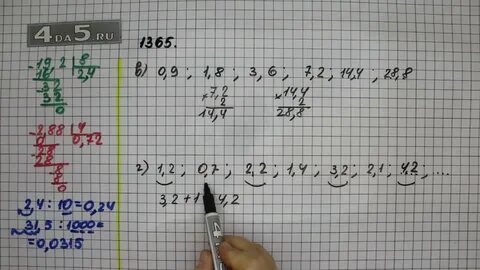 4DA5.RU
1365.
19,2 | 8
16 | 2,4
32
32
0
2,88 | 4
0 | 0,72
28
28
8
8
0
2,4 : 10 = 0,24
31,5 : 1000 =
= 0,0315
в) 0,9 ; 1,8 ; 3,6 ; 7,2 ; 14,4 ; 28,8
× 7,2
2
14,4
× 14,4
2
28,8
г) 1,2 ; 0,7 ; 2,2 ; 1,4 ; 3,2 ; 2,1 ; 4,2 ; ...
3,2 + 1 4,2